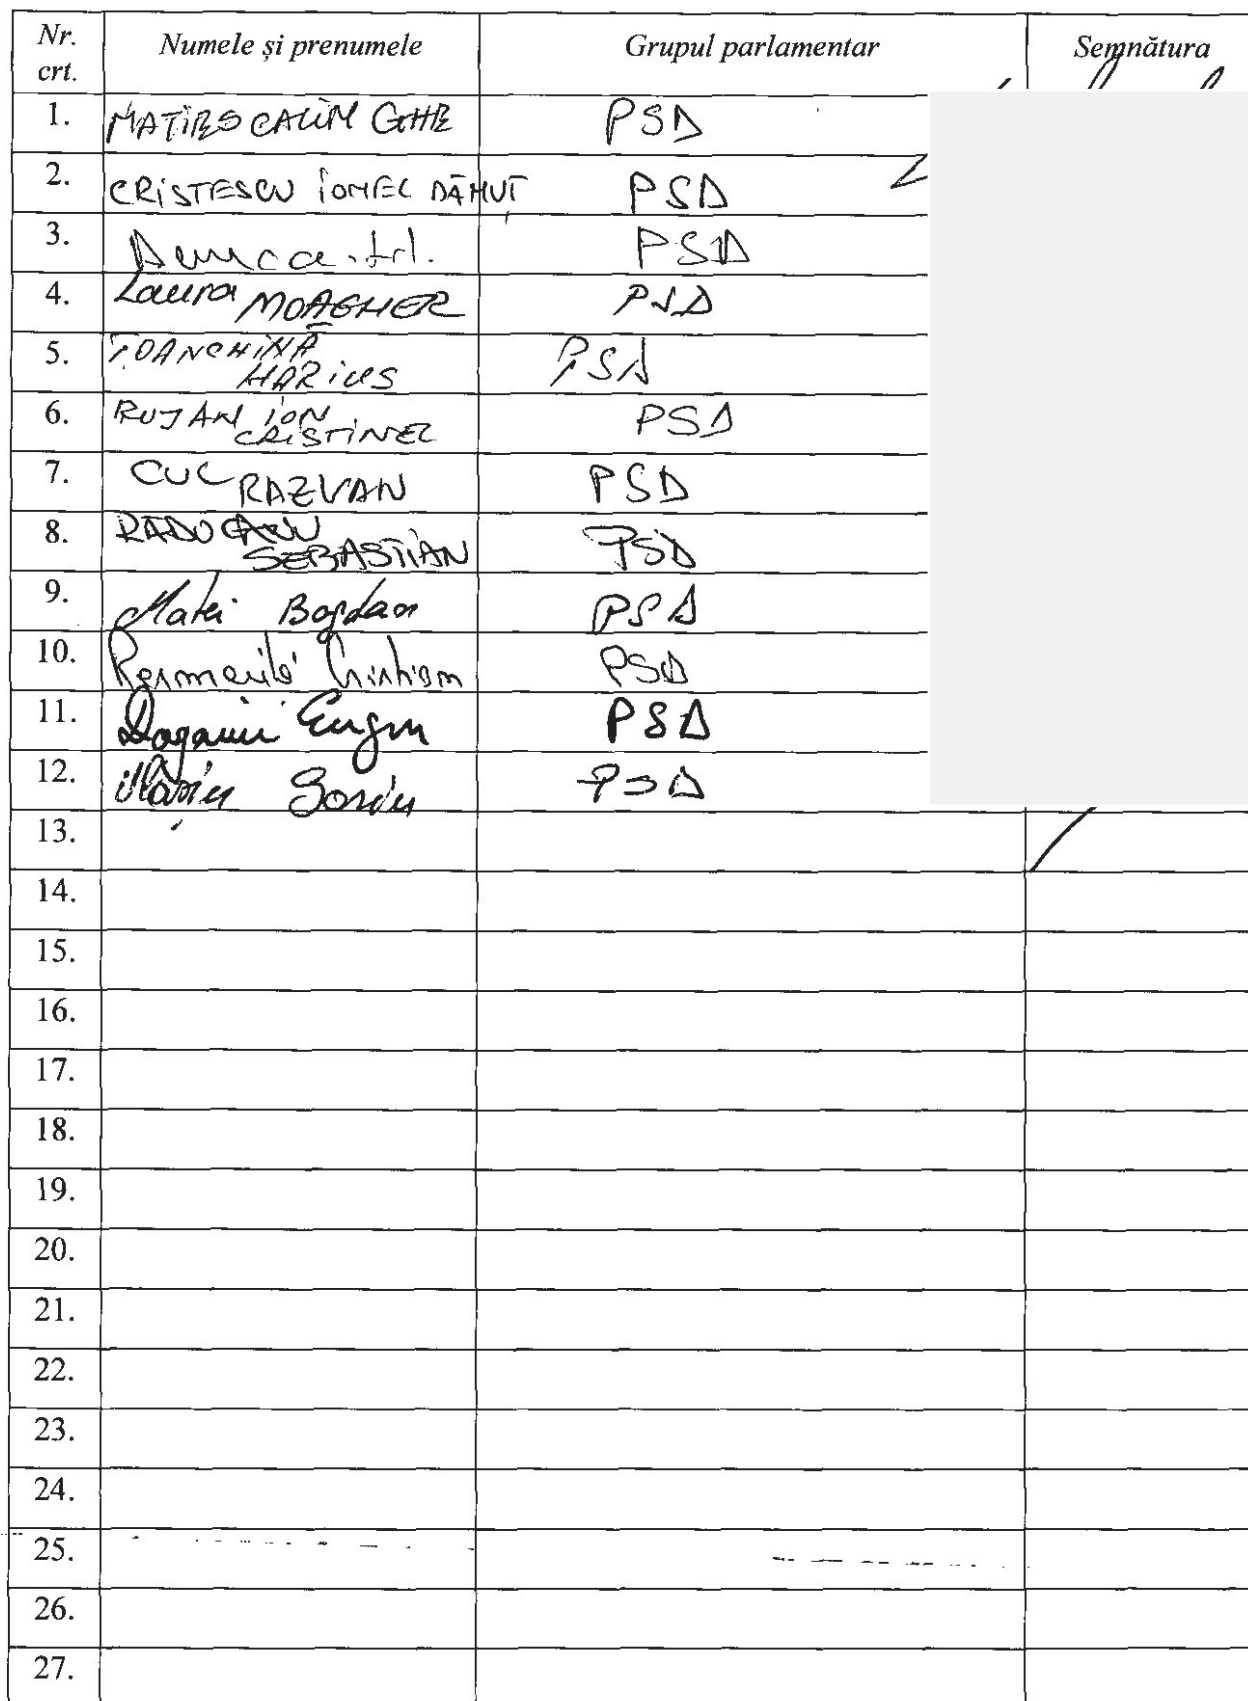 Nr. crt. Numele și prenumele Grupul parlamentar Semnătura
1. MATIEȘ CALIN GHE PSD
2. CRISTESCU IONEL DĂNUȚ PSD
3. PSD
4. Laura MOAGHER PSD
5. TOANCHINĂ MARIUS PSD
6. RUJAN ION CRISTINEL PSD
7. CUC RAZVAN PSD
8. RADUCANU SEBASTIAN PSD
9. Matei Bogdan PSD
10. PSD
11. Eugen PSD
12. Sorin PSD
13.
14.
15.
16.
17.
18.
19.
20.
21.
22.
23.
24.
25.
26.
27.